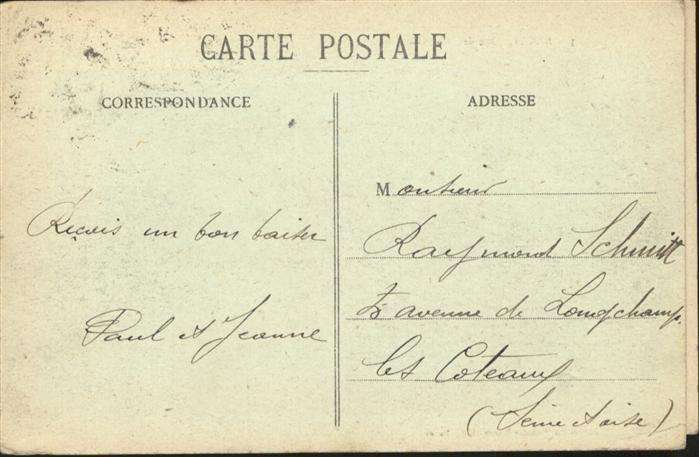 CARTE POSTALE
CORRESPONDANCE
Reçois un bon baiser
Paul et Jeanne
ADRESSE
Monsieur
Raymond Schmitt
avenue de Longchamp
les Coteaux
(Seine & Oise)